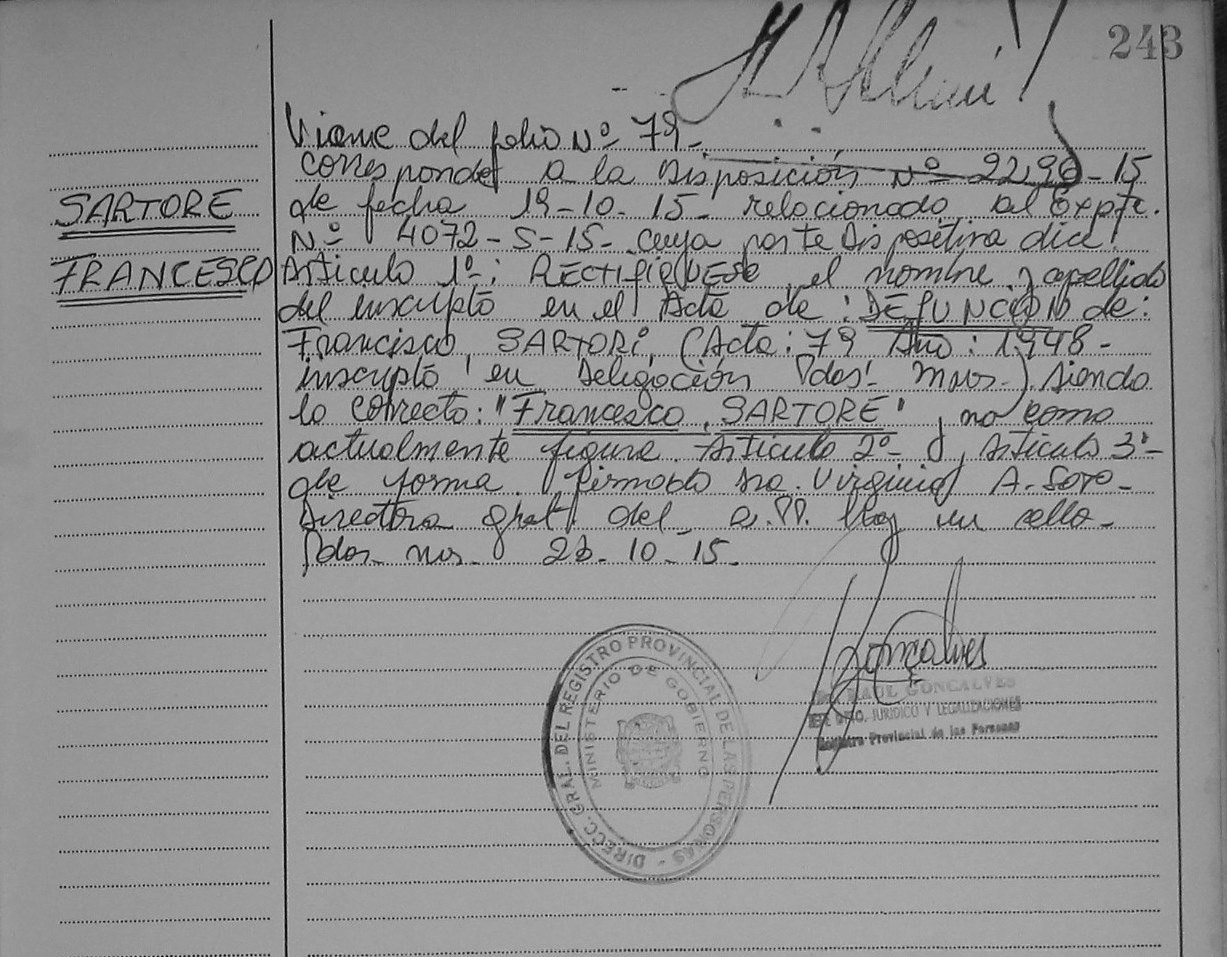 243
Viene del folio Nº 79-
corresponde a la Disposición Nº 2296-15
SARTORE
de fecha 19-10-15- relacionado al Expte.
Nº 4072-S-15- cuya parte Dispositiva dice:
FRANCESCO
Articulo 1º: RECTIFIQUESE el nombre y apellido
del inscripto en el Acta de: DEFUNCION de:
Francisco, SARTORI, (Acta: 79 Año: 1948-
inscripto en Delegación Pdas- Mnes-) siendo
lo correcto: "Francesco, SARTORE", no como
actualmente figura. Articulo 2º- y, Articulo 3º-
de forma. firmado Sra. Virginia A. Soto-
Directora Gral del R.P.P. Hay un sello-
Pdas- Mns- 10-15-
Gonçalves
RAUL GONCALVES
JEFE DPTO. JURIDICO Y LEGALIZACIONES
Registro Provincial de las Personas
DIRECC. GRAL. DEL REGISTRO PROVINCIAL DE LAS PERSONAS -
MINISTERIO DE GOBIERNO